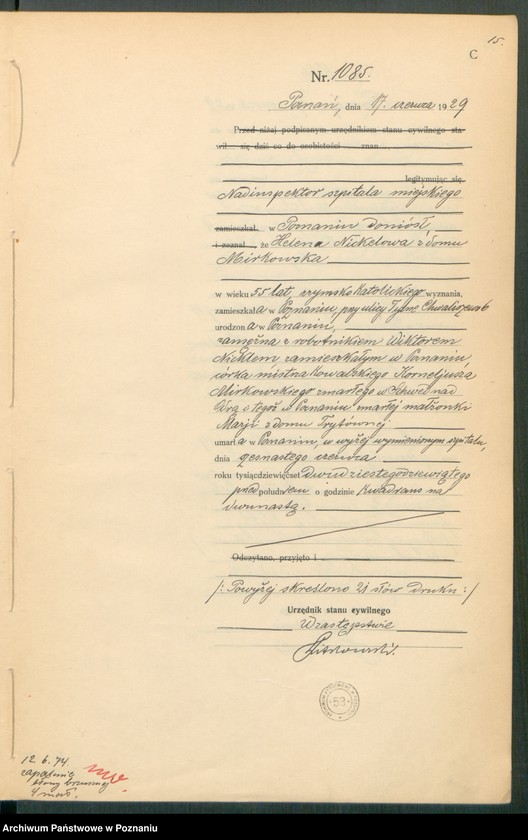 15.
C
Nr. 1085.
Poznań, dnia 17. czerwca 1929
Przed niżej podpisanym urzędnikiem stanu cywilnego sta-
wił się dziś co do osobistości znan
legitymując się
Nadinspektor szpitala miejskiego
zamieszkał w Poznaniu doniósł,
i zeznał, że Helena Nickelowa z domu
Mirkowska
w wieku 55 lat, rzymsko katolickiego wyznania,
zamieszkała w Poznaniu, przy ulicy Tylne Chwaliszewo 6
urodzona w Poznaniu,
zamężna z robotnikiem Wiktorem
Nicklem zamieszkałym w Poznaniu,
córka mistrza kowalskiego Korneljusza
Mirkowskiego zmarłego w Schwed nad
Odrą i tegoż w Poznaniu zmarłej małżonki
Marji z domu
umarła w Poznaniu, w wyżej wymienionym szpitalu,
dnia czerwca
roku tysiącdziewięćset dwudziestegodziewiątego
przed południem o godzinie kwadrans na
dwunastą.
Odczytano, przyjęto i
/: Powyżej skreślono 21 słów druku :/
Urzędnik stanu cywilnego
W zastępstwie
12.6.74.
zapełniono
strony
Archiwum Państwowe w Poznaniu